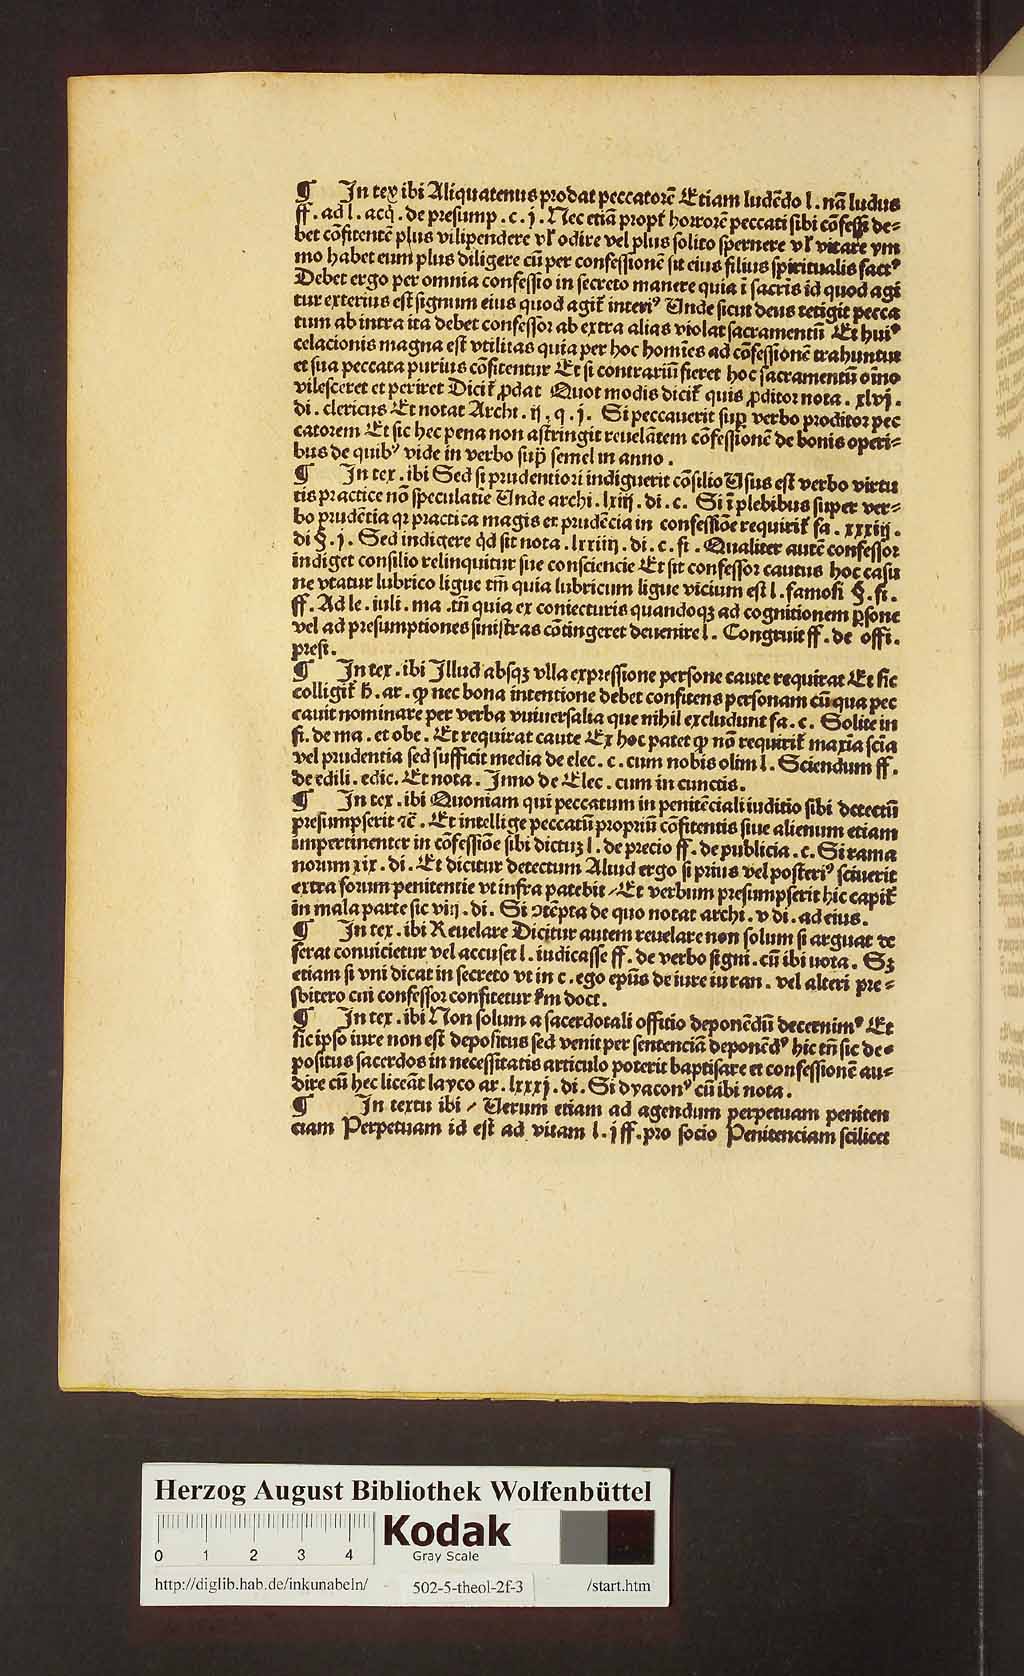 ¶ In tex ibi Aliquatenus prodat peccatorē Etiam ludēdo l. nā ludus
ff. ad l. acq̄. de presump. c. j. Nec etiā propt̄ horrorē peccati sibi cōfessi de=
bet cōfitentē plus vilipendere vl̄ odire vel plus solito spernere vl̄ vitare ym
mo habet eum plus diligere cū per confessionē sit eius filius spiritualis factꝰ
Debet ergo per omnia confessio in secreto manere quia ī sacris id quod agi
tur exterius est signum eius quod agit̄ interiꝰ Unde sicut deus tetigit pecca
tum ab intra ita debet confessor ab extra alias violat sacramentū Et huiꝰ
celacionis magna est vtilitas quia per hoc homīes ad cōfessionē trahuntur
et sua peccata purius cōfitentur Et si contrariū fieret hoc sacramentū oīno
vilesceret et periret Dicit̄ ꝓdat Quot modis dicit̄ quis ꝓditor nota. xlvj.
di. clericus Et notat Archi. ij. q. j. Si peccauerit suꝑ verbo proditor pec
catorem Et sic hec pena non astringit reuelātem cōfessionē de bonis operi=
bus de quibꝰ vide in verbo sup̄ semel in anno.
¶ In tex. ibi Sed si prudentiori indiguerit cōsilio Usus est verbo virtu
tis practice nō speculatiē Unde archi. lxiij. di. c. Si ī plebibus super ver=
bo prudētia qr practica magis et prudēcia in confessiōe requirit̄ fa. xxxiij.
di §. j. Sed indigere qd sit nota. lxxiiij. di. c. fi. Qualiter autē confessor
indiget consilio relinquitur sue consciencie Et sit confessor cautus hoc casu
ne vtatur lubrico ligue tm̄ quia lubricum ligue vicium est l. famosi §. fi.
ff. Ad le. iuli. ma. tn̄ quia ex coniecturis quandoqꝫ ad cognitionem ꝑsone
vel ad presumptiones sinistras cōtingeret deuenire l. Congruit ff. de offi.
presi.
¶ In tex. ibi Illud absqꝫ vlla expressione persone caute requirat Et sic
colligit̄ h̄. ar. ꝙ nec bona intentione debet confitens personam cū qua pec
cauit nominare per verba vniuersalia que nihil excludunt fa. c. Solite in
fi. de ma. et obe. Et requirat caute Ex hoc patet ꝙ nō requirit̄ maxīa scīa
vel prudentia sed sufficit media de elec. c. cum nobis olim l. Sciendum ff.
de edili. edic. Et nota. Inno de Elec. cum in cunctis.
¶ In tex. ibi Quoniam qui peccatum in penitēciali iuditio sibi detectū
presumpserit ⁊c̄. Et intellige peccatū propriū cōfitentis siue alienum etiam
impertinenter in cōfessiōe sibi dictuꝫ l. de precio ff. de publicia. c. Si rama
norum xix. di. Et dicitur detectum Aliud ergo si prius vel posteriꝰ sciuerit
extra forum penitentie vt infra patebit / Et verbum presumpserit hic capit̄
in mala parte sic viij. di. Si ↄtēpta de quo notat archi. v di. ad eius.
¶ In tex. ibi Reuelare Dicitur autem reuelare non solum si arguat de
ferat conuicietur vel accuset l. iudicasse ff. de verbo signi. cū ibi nota. Sꝫ
etiam si vni dicat in secreto vt in c. ego ep̄us de iure iuran. vel alteri pre=
sbitero cui confessor confitetur sm̄ doct.
¶ In tex. ibi Non solum a sacerdotali offitio deponēdū decernimꝰ Et
sic ipso iure non est depositus sed venit per sentenciā deponēdꝰ hic tn̄ sic de=
positus sacerdos in necessitatis articulo poterit baptisare et confessionē au=
dire cū hec liceāt layco ar. lxxxj. di. Si dyaconꝰ cū ibi nota.
¶ In textu ibi / Uerum etiam ad agendum perpetuam peniten
ciam Perpetuam id est ad vitam l. j ff. pro socio Penitenciam scilicet
Herzog August Bibliothek Wolfenbüttel
0 1 2 3 4
Kodak
Gray Scale
http://diglib.hab.de/inkunabeln/ 502-5-theol-2f-3 /start.htm